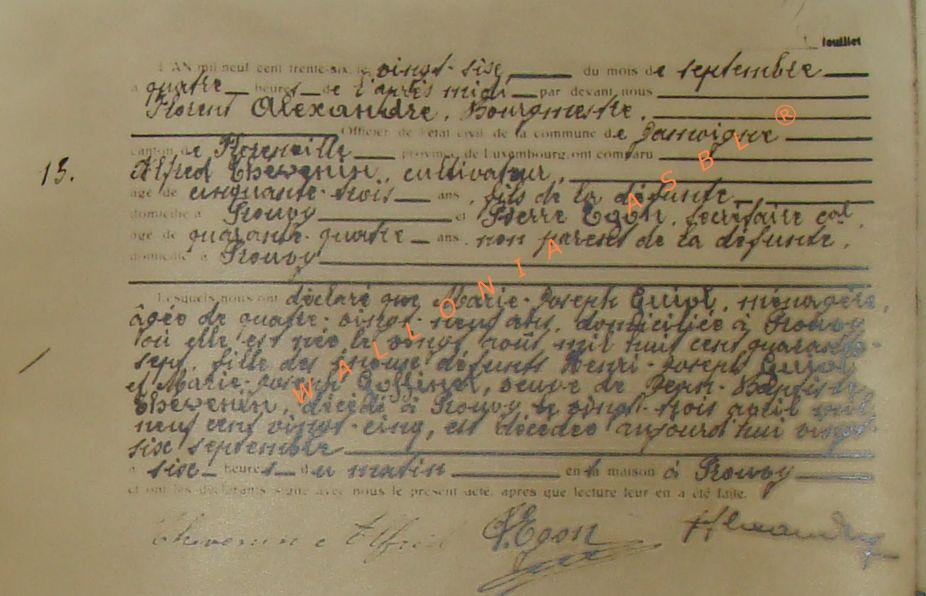 feuillet
L'AN mil neuf cent trente-six, le vingt-six, du mois de septembre
à quatre heures de l'après midi par devant nous
Florent Alexandre, Bourgmestre,
Officier de l'état civil de la commune de Jamoigne
canton de Florenville province de Luxembourg, ont comparu
13. Alfred Thevenin, cultivateur,
âgé de cinquante-trois ans, fils de la défunte
domicilié à Prouvy et Pierre Egon, secrétaire cal
âgé de quarante-quatre ans, non parent de la défunte,
domicilié à Prouvy
Lesquels nous ont déclaré que Marie-Joseph, ménagère,
âgée de quatre-vingt-neuf ans, domiciliée à Prouvy
où elle est née le vingt août mil huit cent quarante-
sept, fille des époux défunts Henri-Joseph
et Marie-Joseph, veuve de Jean-Baptiste
Thevenin, décédé à Prouvy le vingt-trois avril mil
neuf cent vingt-cinq, est décédée aujourd'hui vingt-
six septembre
à six heures du matin en sa maison à Prouvy
et ont les déclarants signé avec nous le présent acte, après que lecture leur en a été faite.
Thevenin Alfred P. Egon Alexandre
WALLONIA ASBL ®